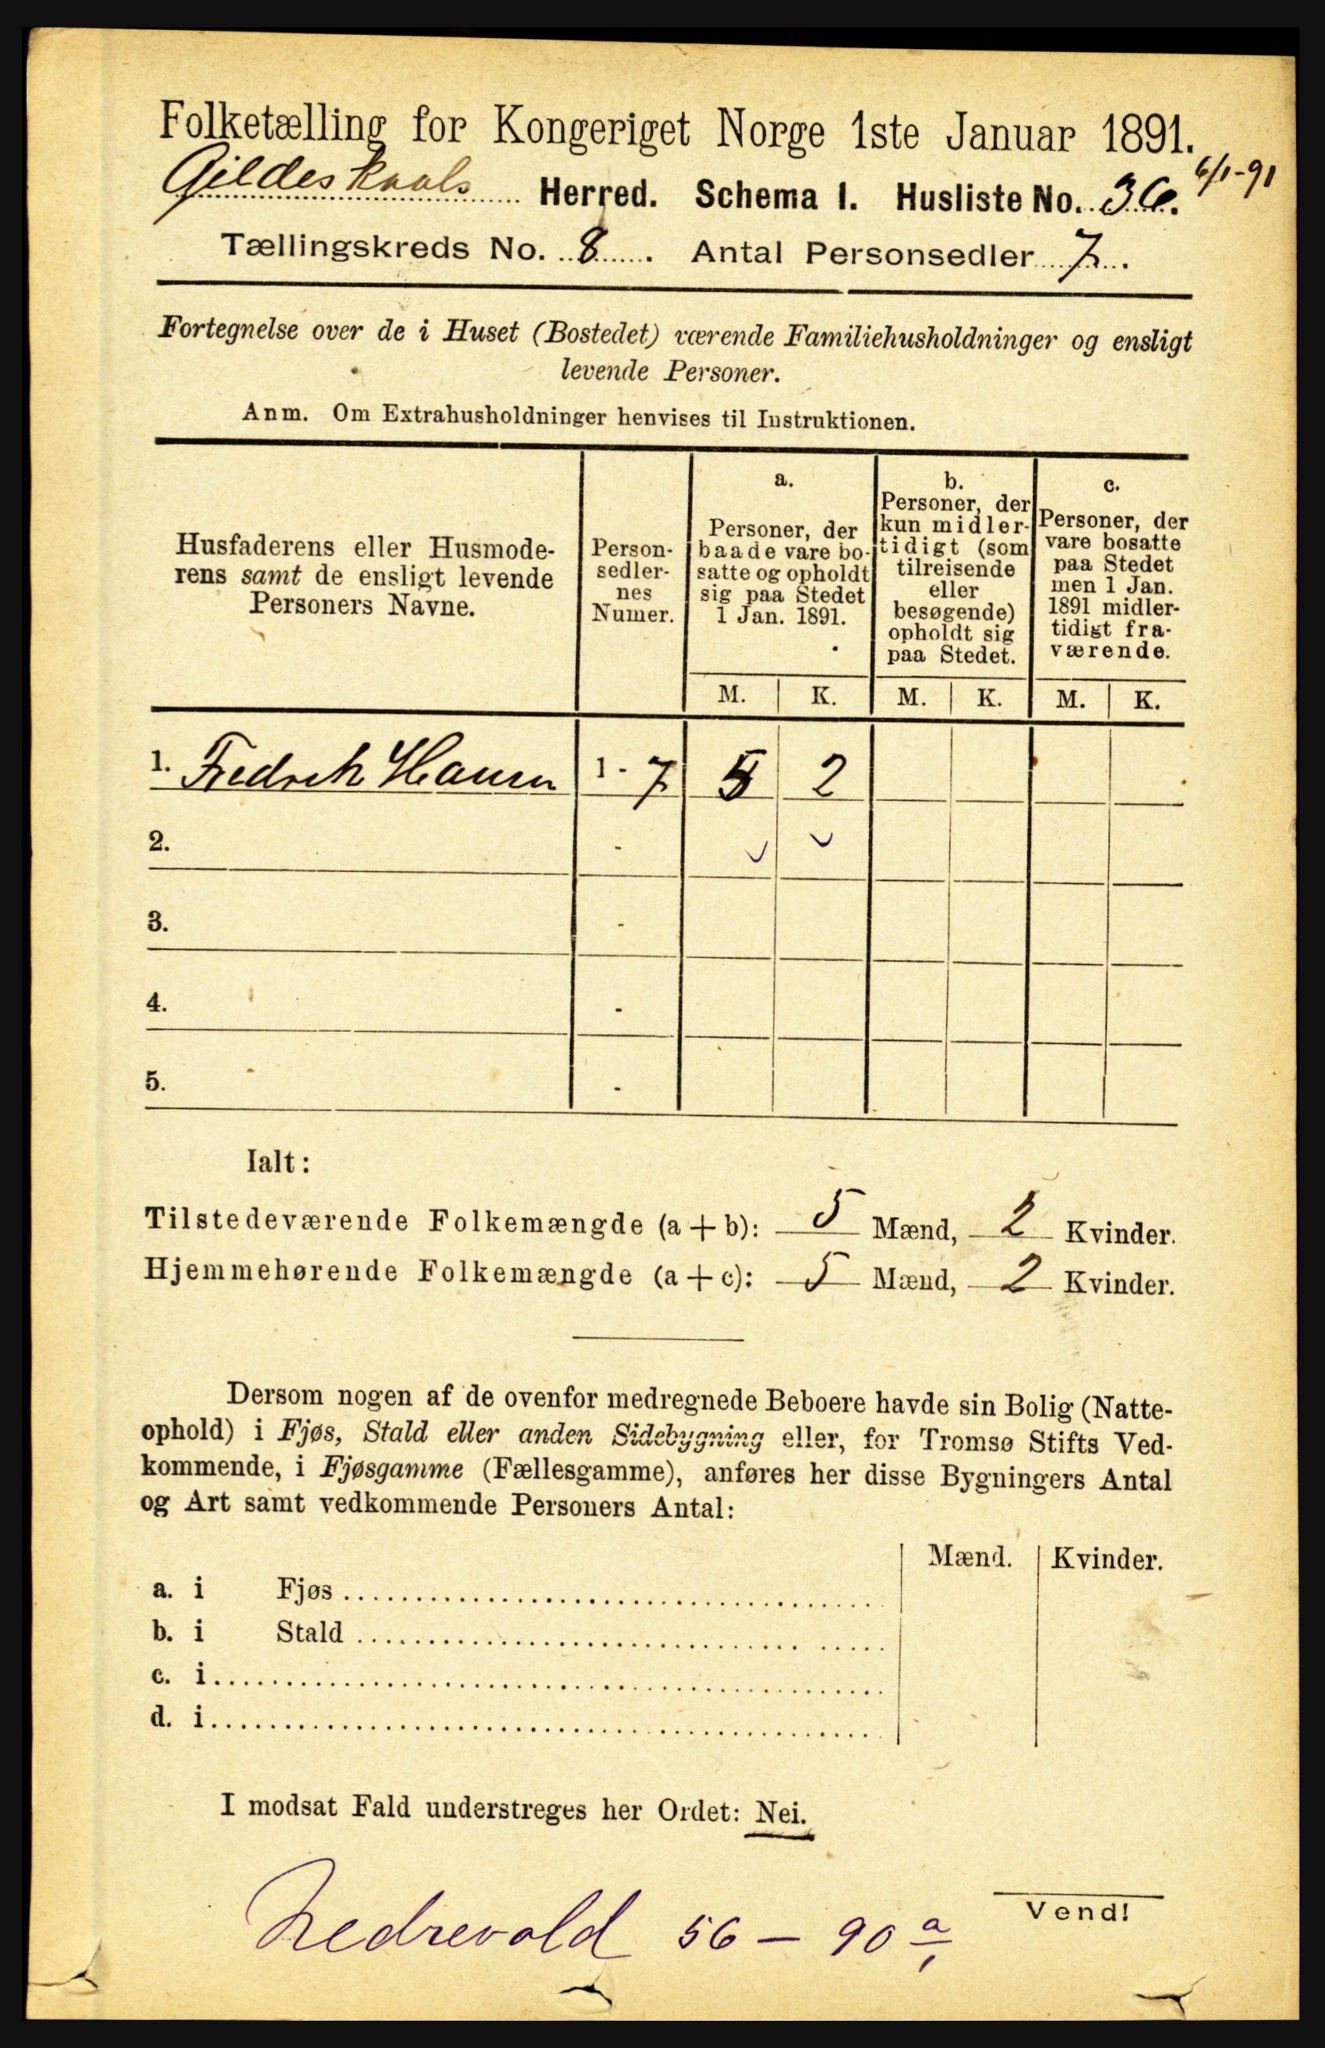 Folketælling for Kongeriget Norge 1ste Januar 1891.
6/1-91
Gildeskaals Herred. Schema I. Husliste No. 36.
Tællingskreds No. 8. Antal Personsedler 7.
Fortegnelse over de i Huset (Bostedet) værende Familiehusholdninger og ensligt
levende Personer.
Anm. Om Extrahusholdninger henvises til Instruktionen.
Husfaderens eller Husmode-
rens samt de ensligt levende
Personers Navne.
Person-
sedler-
nes
Numer.
a.
Personer, der
baade vare bo-
satte og opholdt
sig paa Stedet
1 Jan. 1891.
b.
Personer, der
kun midler-
tidigt (som
tilreisende
eller
besøgende)
opholdt sig
paa Stedet.
c.
Personer, der
vare bosatte
paa Stedet
men 1 Jan.
1891 midler-
tidigt fra-
værende.
M. K. M. K. M. K.
1. Fredrik Hansen 1 - 7 5 2
2. -
3. -
4. -
5. -
Ialt:
Tilstedeværende Folkemængde (a+b): 5 Mænd, 2 Kvinder.
Hjemmehørende Folkemængde (a+c): 5 Mænd, 2 Kvinder.
Dersom nogen af de ovenfor medregnede Beboere havde sin Bolig (Natte-
ophold) i Fjøs, Stald eller anden Sidebygning eller, for Tromsø Stifts Ved-
kommende, i Fjøsgamme (Fællesgamme), anføres her disse Bygningers Antal
og Art samt vedkommende Personers Antal:
Mænd. Kvinder.
a. i Fjøs
b. i Stald
c. i
d. i
I modsat Fald understreges her Ordet: Nei.
Vend!
Nedrevold 56 - 90 a